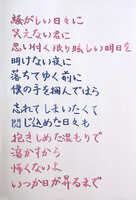 騒がしい日々に
笑えない君に
思い付く限り眩しい明日を
明けない夜に
落ちてゆく前に
僕の手を掴んでほら
忘れてしまいたくて
閉じ込めた日々も
抱きしめた温もりで
溶かすから
怖くないよ
いつか日が昇るまで